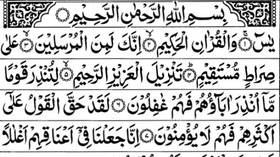 بِسْمِ اللّٰهِ الرَّحْمٰنِ الرَّحِيْمِ
يٰسٓ ۚ وَالْقُرْاٰنِ الْحَكِيْمِ ۙ اِنَّكَ لَمِنَ الْمُرْسَلِيْنَ ۙ عَلٰى
صِرَاطٍ مُّسْتَقِيْمٍ ؕ تَنْزِيْلَ الْعَزِيْزِ الرَّحِيْمِ ۙ لِتُنْذِرَ قَوْمًا
مَّاۤ اُنْذِرَ اٰبَآؤُهُمْ فَهُمْ غٰفِلُوْنَ لَقَدْ حَقَّ الْقَوْلُ عَلٰٓى
اَكْثَرِهِمْ فَهُمْ لَا يُؤْمِنُوْنَ اِنَّا جَعَلْنَا فِيْۤ اَعْنَاقِهِمْ اَغْلٰلًا